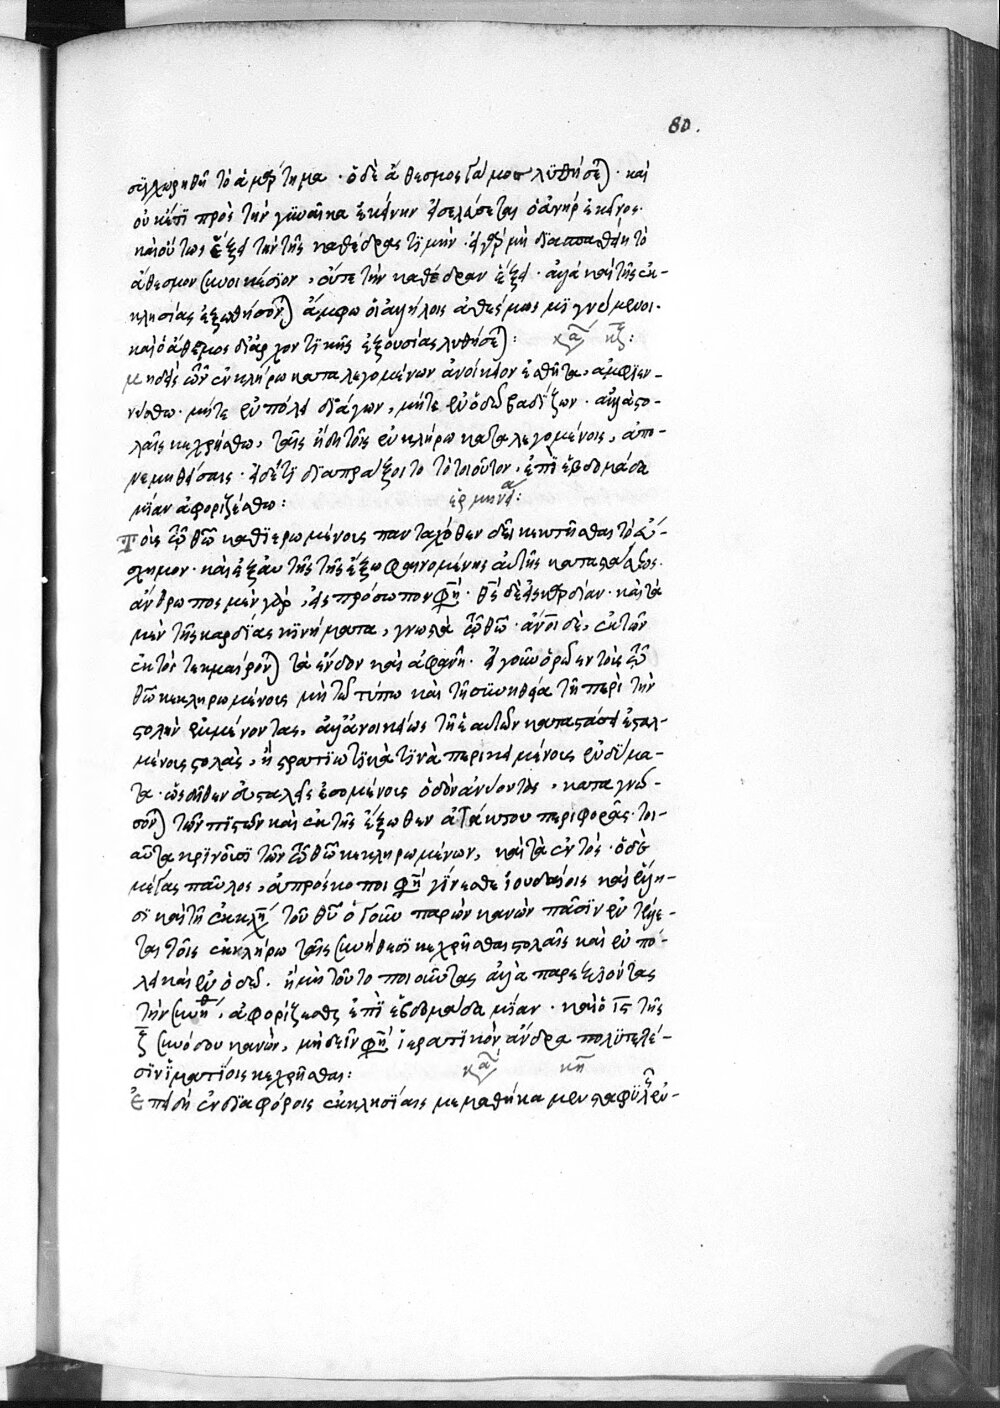 80.
συγχωρηθῆ τὸ ἁμάρτημα· ὁ δὲ ἄθεσμος γάμος λυθήσεται· καὶ
οὐκέτι πρὸς τὴν γυναῖκα ἐκείνην εἰσελάσεται ὁ ἀνὴρ ἐκεῖνος·
καὶ οὕτως ἕξει τὴν τῆς καθέδρας τιμήν· εἰ γὰρ μὴ διασπασθείη τὸ
ἄθεσμον συνοικέσιον, οὔτε τὴν καθέδραν ἕξει· ἀλλὰ καὶ τῆς ἐκ-
κλησίας ἐξωθήσονται ἄμφω οἱ ἀλλήλοις ἀθέσμως μιγνύμενοι·
καὶ ὁ ἄθεσμος διάρχοντικῆς ἐξουσίας λυθήσεται: κανὼν κζ:
μηδεὶς τῶν ἐν κλήρω καταλεγομένων ἀνοίκειον ἐσθῆτα, ἀμφιεν-
νύσθω· μήτε ἐν πόλει διάγων, μήτε ἐν ὁδῶ βαδίζων· ἀλλὰ στο-
λαῖς κεχρήσθω, ταῖς ἤδη τοῖς ἐν κλήρω καταλεγομένοις, ἀπο-
νεμηθείσαις· εἰ δέ τι διαπράξοιτο τὸ τοιοῦτον, ἐπὶ ἑβδομάδα
μίαν ἀφοριζέσθω: ἑρμηνεία:
Τοῖς τῶ θεῶ καθιερωμένοις πανταχόθεν δεῖ σκοπεῖσθαι τὸ εὔ-
σχημον· καὶ ἐξ αὐτῆς τῆς ἔξω φαινομένης αὐτῆς καταστάσεως·
ἄνθρωπος μὲν γὰρ, εἰς πρόσωπον φησί· θεὸς δὲ εἰς καρδίαν· καὶ τὰ
μὲν τῆς καρδίας κινήματα, γνωστὰ τῶ θεῶ· ἄνθρωποι δὲ, ἐκ τῶν
ἐκτὸς τεκμαίρονται τὰ ἔνδον καὶ ἀφανῆ· εἰ γοῦν ὁρῶεν τοὺς τῶ
θεῶ κεκληρωμένους μὴ τῶ τύπω καὶ τῇ συνηθεία τῇ περὶ τὴν
στολὴν ἐμμένοντας, ἀλλ' ἀνοικείως τῇ ἑαυτῶν καταστάσει ἐσταλ-
μένοις στολὰς, ἢ στρατιωτικά τινα περικειμένοις ἐνδύμα-
τα· ὡς δῆθεν ἀσφαλεῖς ἐσομένοις ὁδὸν ἀνύοντες, καταγνώ-
σονται τῶν πιστῶν καὶ ἐκ τῆς ἔξωθεν ἀτάκτου περιφορᾶς· τοι-
αῦτα κρίνουσι τῶν τῶ θεῶ κεκληρωμένων, καὶ τὰ ἐντός· ὁ δὲ
μέγας παῦλος, ἀπρόσκοποι φησί γίνεσθε ἰουδαίοις καὶ ἕλλη-
σι καὶ τῇ ἐκκλησία τοῦ θεοῦ ὁ γοῦν παρὼν κανὼν πᾶσιν ἐντέλλε-
ται τοῖς ἐν κλήρω ταῖς συνήθεσι κεχρῆσθαι στολαῖς καὶ ἐν πό-
λει καὶ ἐν ὁδῶ. ἢ μὴ τοῦτο ποιοῦντας ἀλλὰ παρεξελθόντας
τὴν συνήθειαν, ἀφορίζεσθαι ἐπὶ ἑβδομάδα μίαν· καὶ ὁ ις τῆς
ζ συνόδου κανὼν, μὴ δεῖν φησί ἱερατικὸν ἄνδρα πολυτελέ-
σιν ἱματίοις κεχρῆσθαι: κανὼν κη
Ἐπειδὴ ἐν διαφόροις ἐκκλησίαις μεμαθήκαμεν σταφυλῆς ἐν-